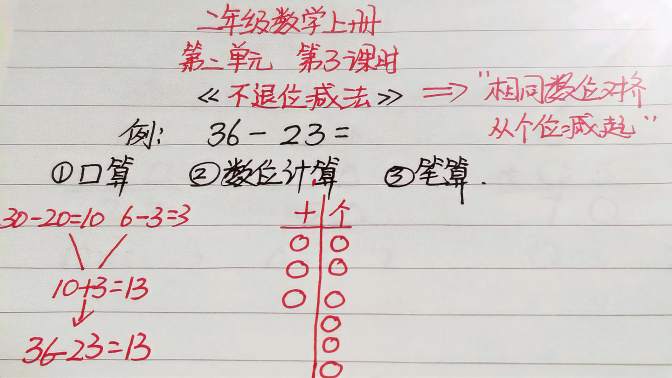 二年级数学上册
第二单元 第3课时
《不退位减法》 ⇒ "相同数位对齐
从个位减起"
例: 36-23=
①口算 ②数位计算 ③笔算.
30-20=10 6-3=3
10+3=13
36-23=13
十 个